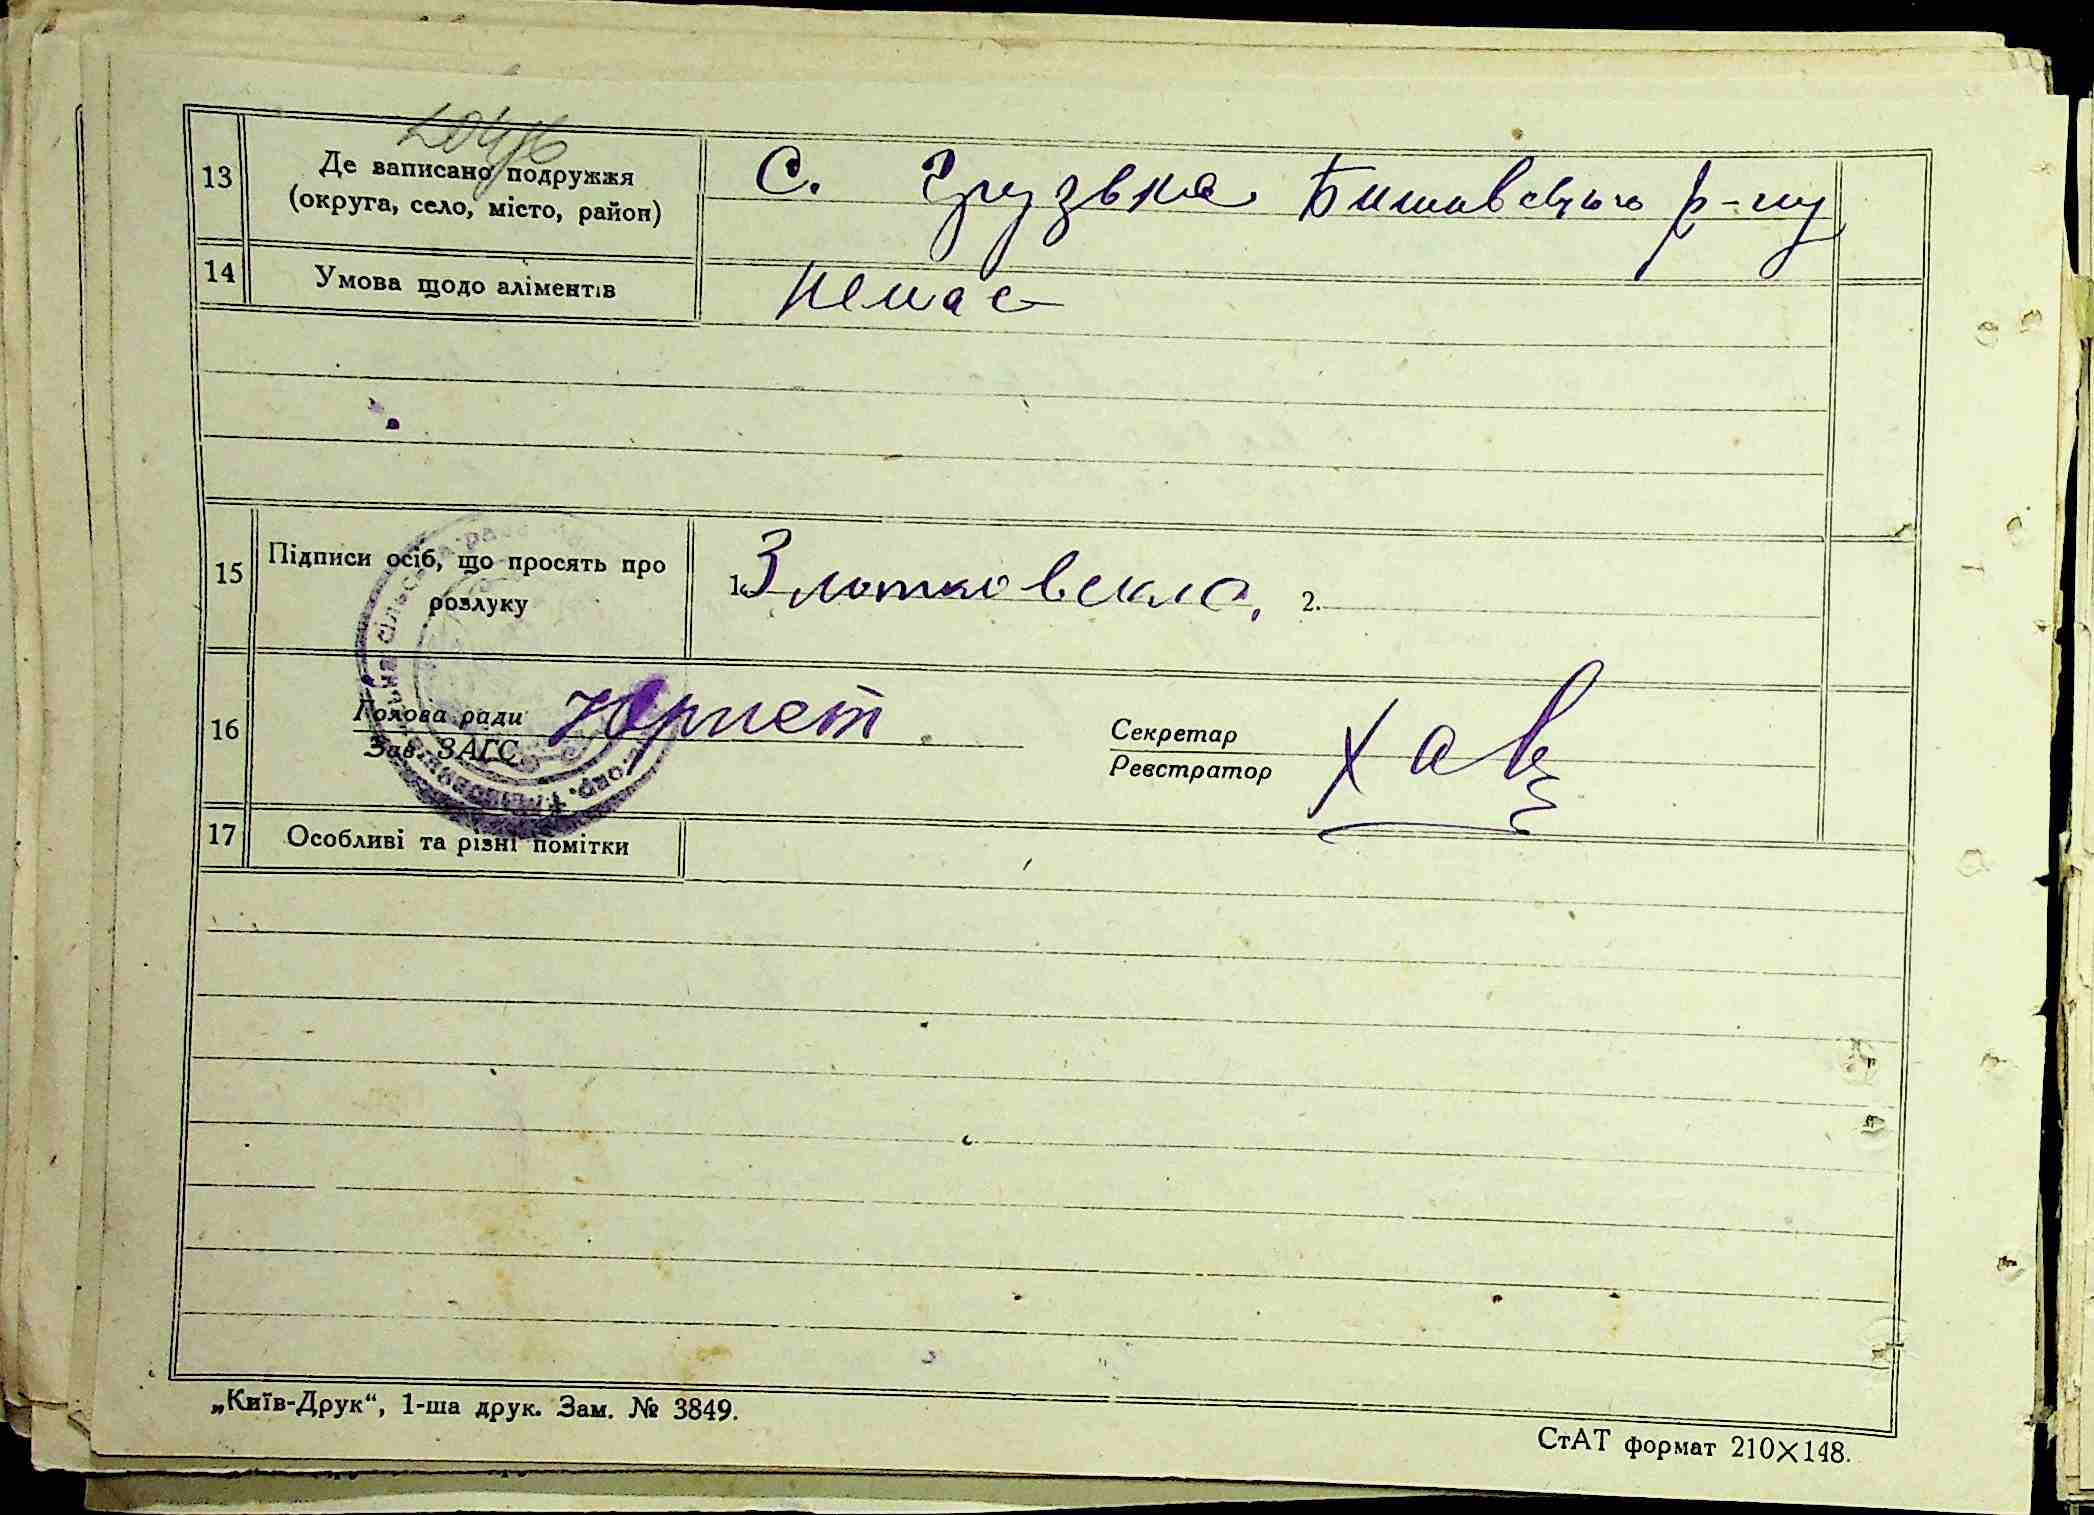 20496
13
Де записано подружжя
(округа, село, місто, район)
С. Грузька Бишівського р-ну
14
Умова щодо аліментів
немає
15
Підписи осіб, що просять про
розлуку
1. Злотковская. 2.
16
Голова ради
Зав. ЗАГС
Юрист
Секретар
Реєстратор
Хав
17
Особливі та різні помітки
„Київ-Друк“, 1-ша друк. Зам. № 3849.
СтАТ формат 210×148.